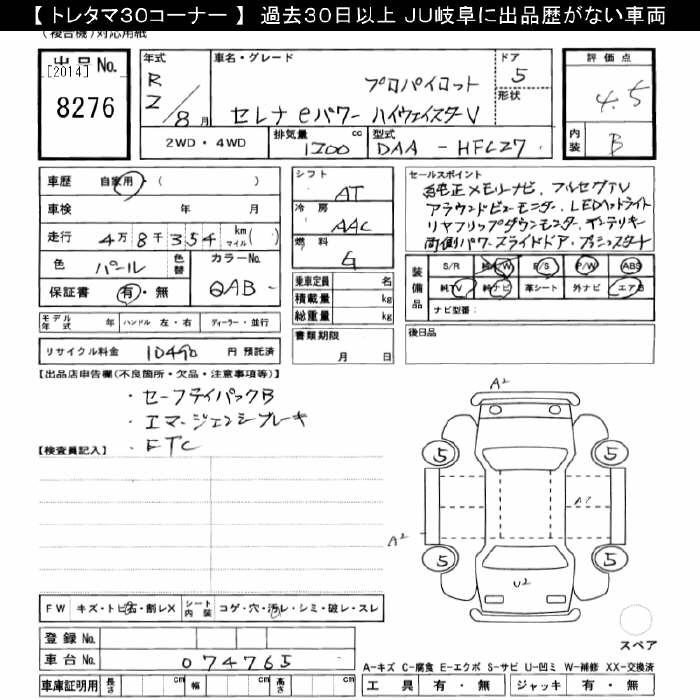 【 トレタマ30コーナー 】 過去30日以上 JU岐阜に出品歴がない車両
(複合機)対応用紙
出品 No.
[2014]
8276
年式
R
2/8月
車名・グレード
プロパイロット
セレナ eパワー ハイウェイスターV
ドア
5
形状
評価点
4.5
内装
B
2WD・4WD
排気量
1200 cc
型式
DAA - HFC27
車歴 自家用・( )
車検 年 月
走行 4万8千354 km マイル ( )
色 パール
色替
カラーNo.
QAB -
保証書 有・無
シフト
AT
冷房
AAC
燃料
G
乗車定員 名
積載量 kg
総重量 kg
セールスポイント
純正メモリーナビ、フルセグTV
アラウンドビューモニター、LEDヘッドライト
リヤフリップダウンモニター、インテリキー
両側パワースライドドア、プッシュスタート
装備品
S/R 純AW P/S P/W ABS
純TV 純ナビ 革シート 外ナビ エアB
ナビ型番:
モデル年式 年 ハンドル 左・右 ディーラー・並行
書類期限
月 日
後日品
リサイクル料金 10490 円 預託済
【出品店申告欄(不良箇所・欠品・注意事項等)】
・セーフティパックB
・エマージェンシーブレーキ
・ETC
【検査員記入】
A2
5
5
A2
5
5
U2
FW キズ・トビ石・割レX
シート内装 コゲ・穴・汚レ・シミ・破レ・スレ
登録 No.
車台 No. 074765
スペア
A-キズ C-腐食 E-エクボ S-サビ U-凹ミ W-補修 XX-交換済
車庫証明用 長さ cm 幅 cm 高さ cm
工具 有・無 ジャッキ 有・無